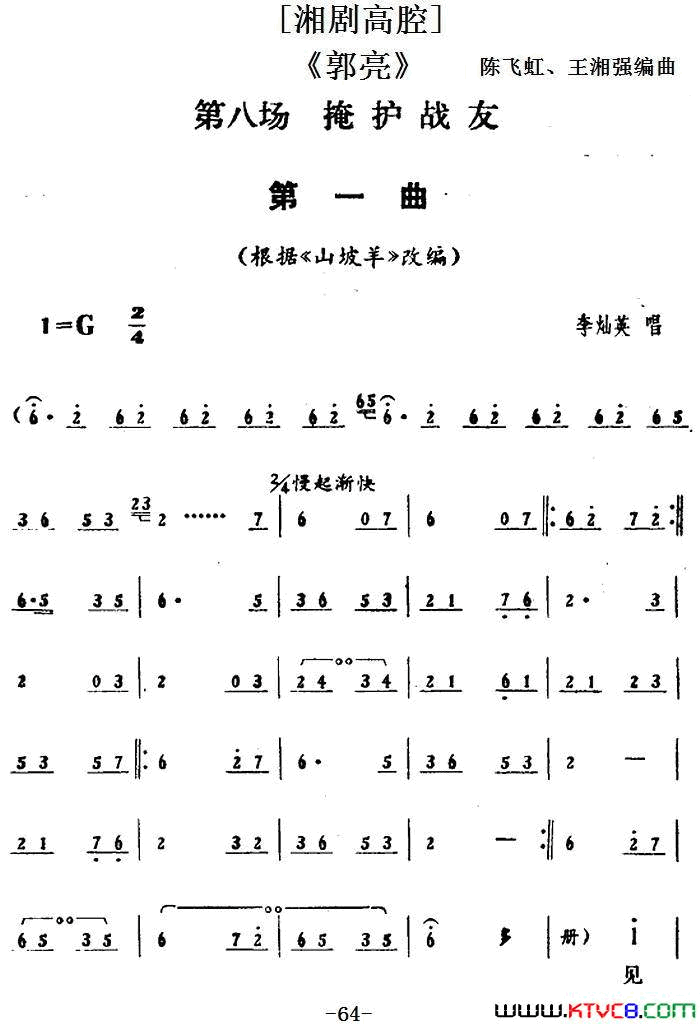 [湘剧高腔]
《郭亮》 陈飞虹、王湘强编曲
第八场 掩护战友
第一曲
(根据《山坡羊》改编)
1=G 2/4 李灿英 唱
(6· 2 62 62 62 62 65 6· 2 62 62 62 65
36 53 23 2 ······ 7 | 2/4慢起渐快 6 07 | 6 07 |: 62 72 :|
6·5 35 | 6· 5 | 36 53 | 21 76 | 2· 3 |
2 03 | 2 03 | 24 34 | 21 61 | 21 23 |
53 57 |: 6 27 | 6· 5 | 36 53 | 2 — |
21 76 | 2 32 | 36 53 | 2 — :| 6 27 |
65 35 | 6 72 | 65 35 | 6 多 | 册) 1
见
-64-
WWW.KTVC8.COM